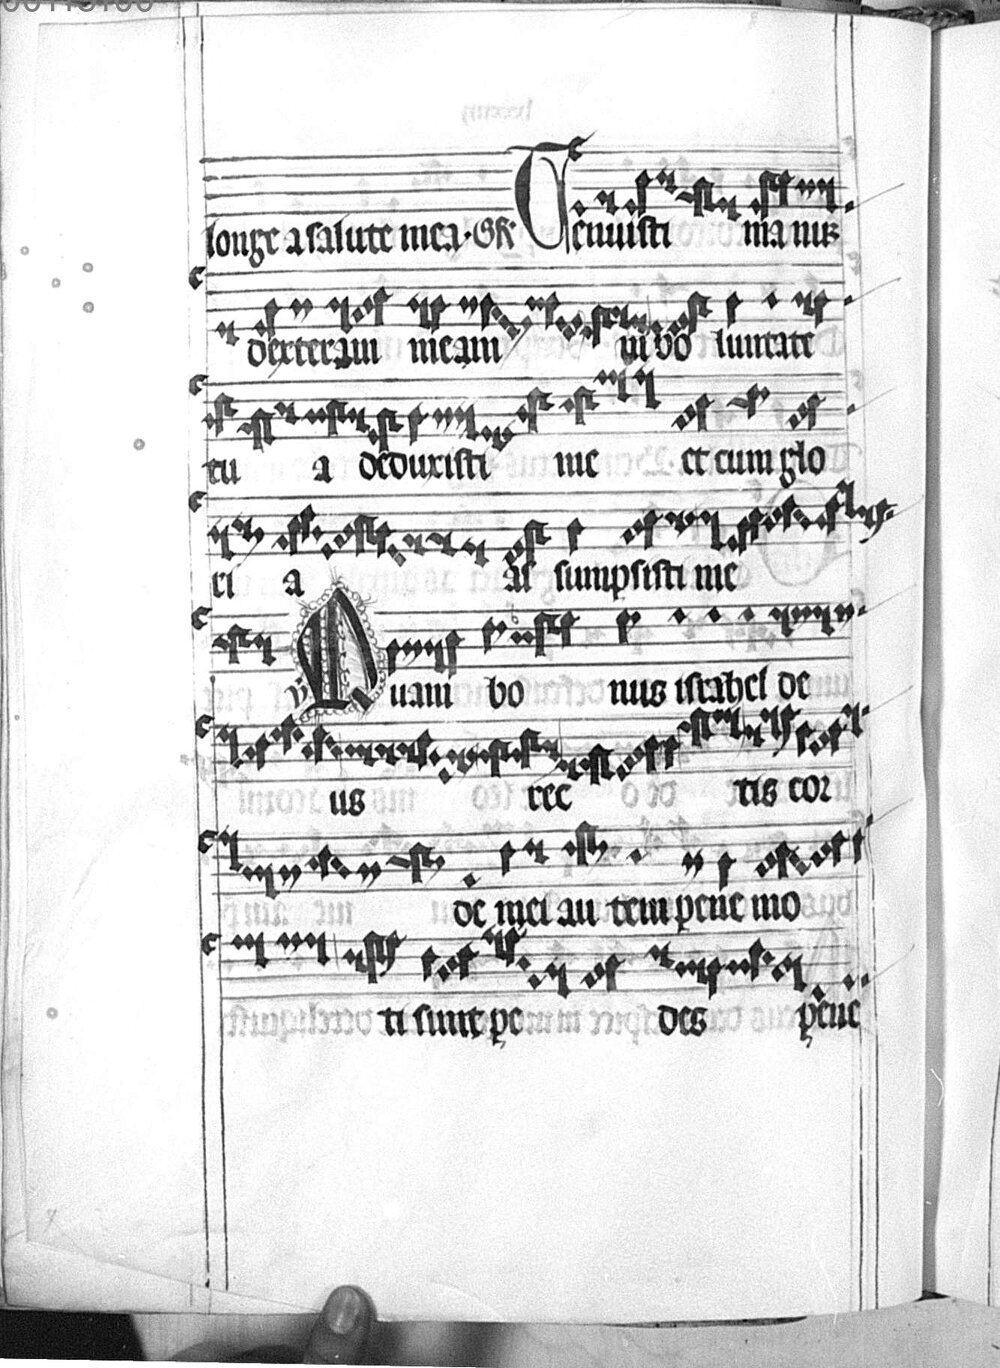 longe a salute mea. Gr Tenuisti manus
dexteram meam in vo luntate
tu a deduxisti me et cum glo
ri a as sumpsisti me
V Quam bo nus israhel de
us rec tis cor
de mei au tem pene mo
ti sunt pe des pene